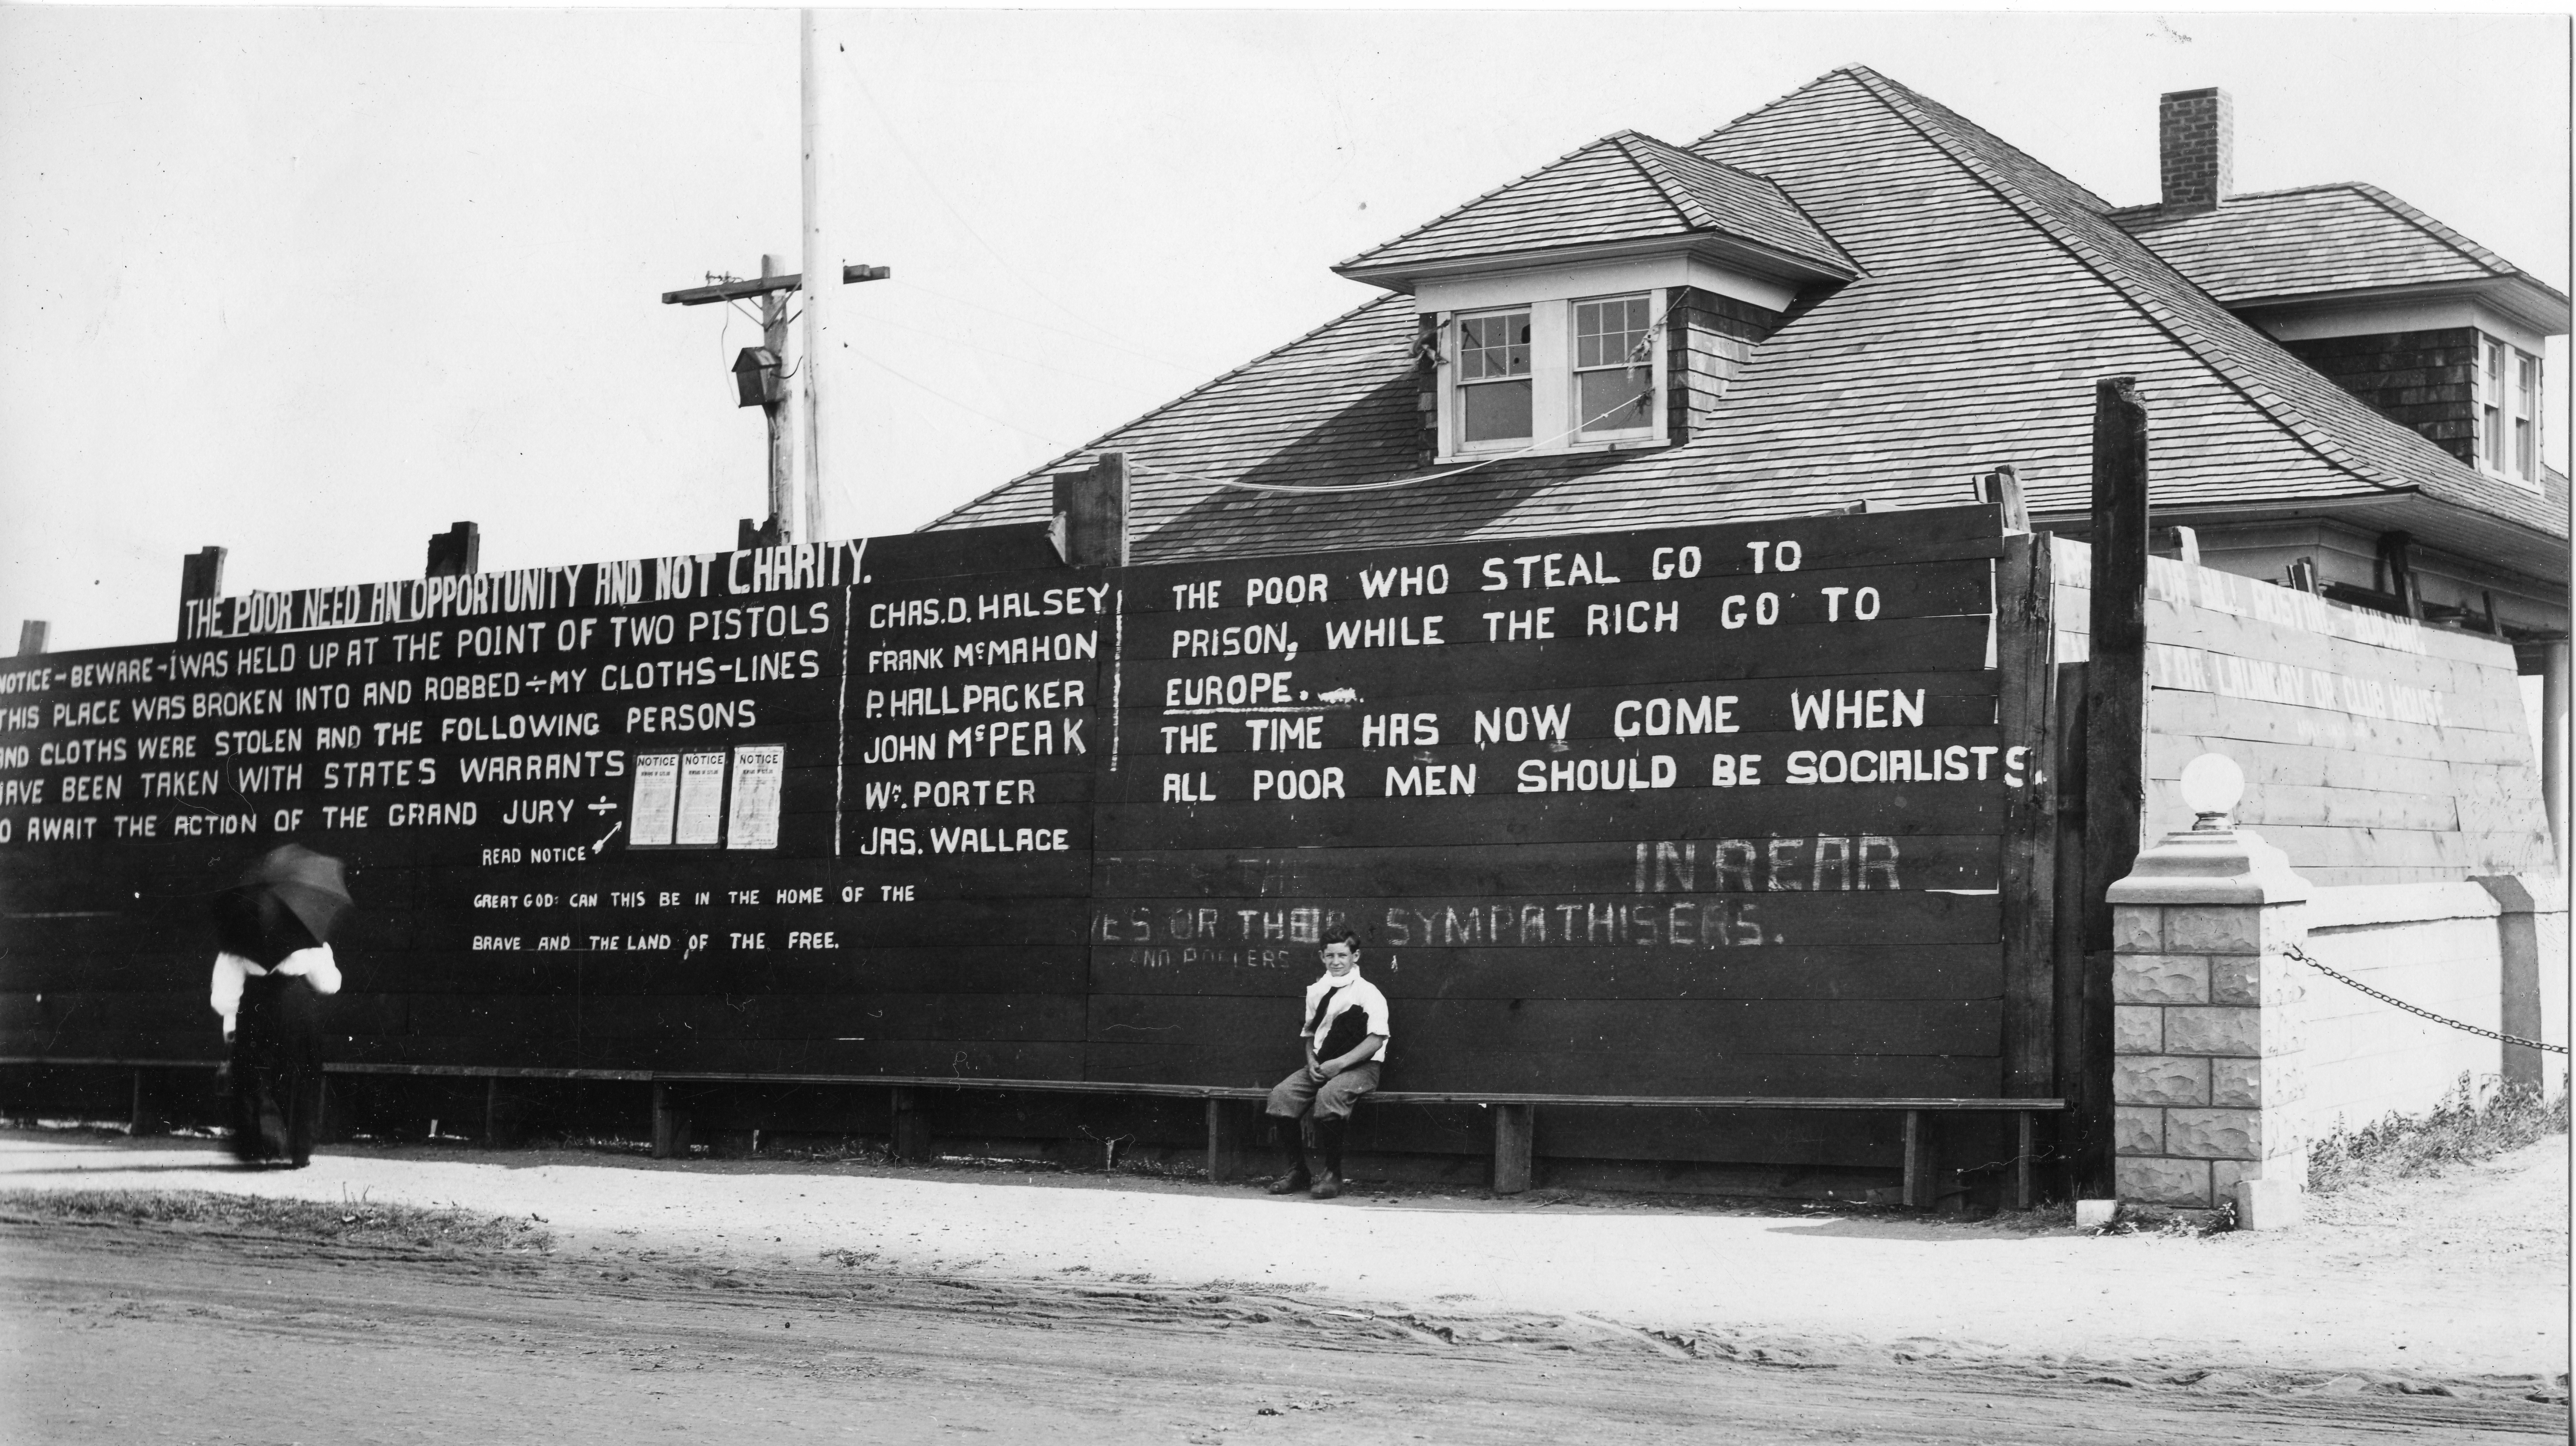 THE POOR NEED AN OPPORTUNITY AND NOT CHARITY.
NOTICE - BEWARE - I WAS HELD UP AT THE POINT OF TWO PISTOLS
THIS PLACE WAS BROKEN INTO AND ROBBED ÷ MY CLOTHS-LINES
AND CLOTHS WERE STOLEN AND THE FOLLOWING PERSONS
HAVE BEEN TAKEN WITH STATES WARRANTS
TO AWAIT THE ACTION OF THE GRAND JURY ÷
READ NOTICE
NOTICE
NOTICE
NOTICE
GREAT GOD: CAN THIS BE IN THE HOME OF THE
BRAVE AND THE LAND OF THE FREE.
CHAS. D. HALSEY
FRANK McMAHON
P. HALL PACKER
JOHN McPEAK
Wᵐ. PORTER
JAS. WALLACE
THE POOR WHO STEAL GO TO
PRISON, WHILE THE RICH GO TO
EUROPE.
THE TIME HAS NOW COME WHEN
ALL POOR MEN SHOULD BE SOCIALISTS.
IN REAR
OR THEIR SYMPATHISERS.
FOR BILL POSTING
FOR LAUNDRY OF CLUB HOUSE